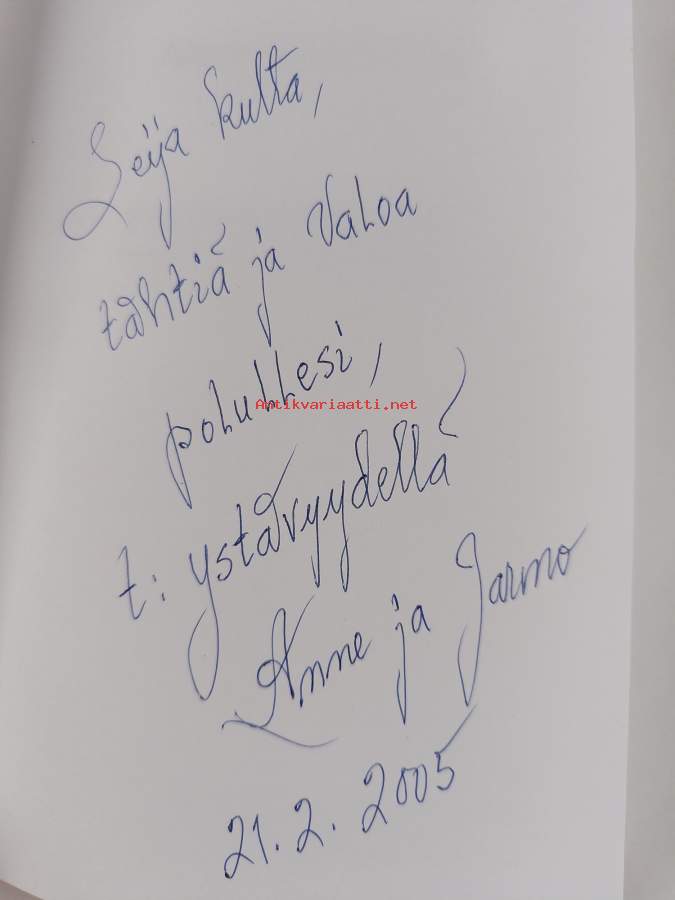 Seija kulta,
tähtiä ja valoa
polullesi,
Antikvariaatti.net
t: ystävyydellä
Anne ja Jarmo
21.2.2005